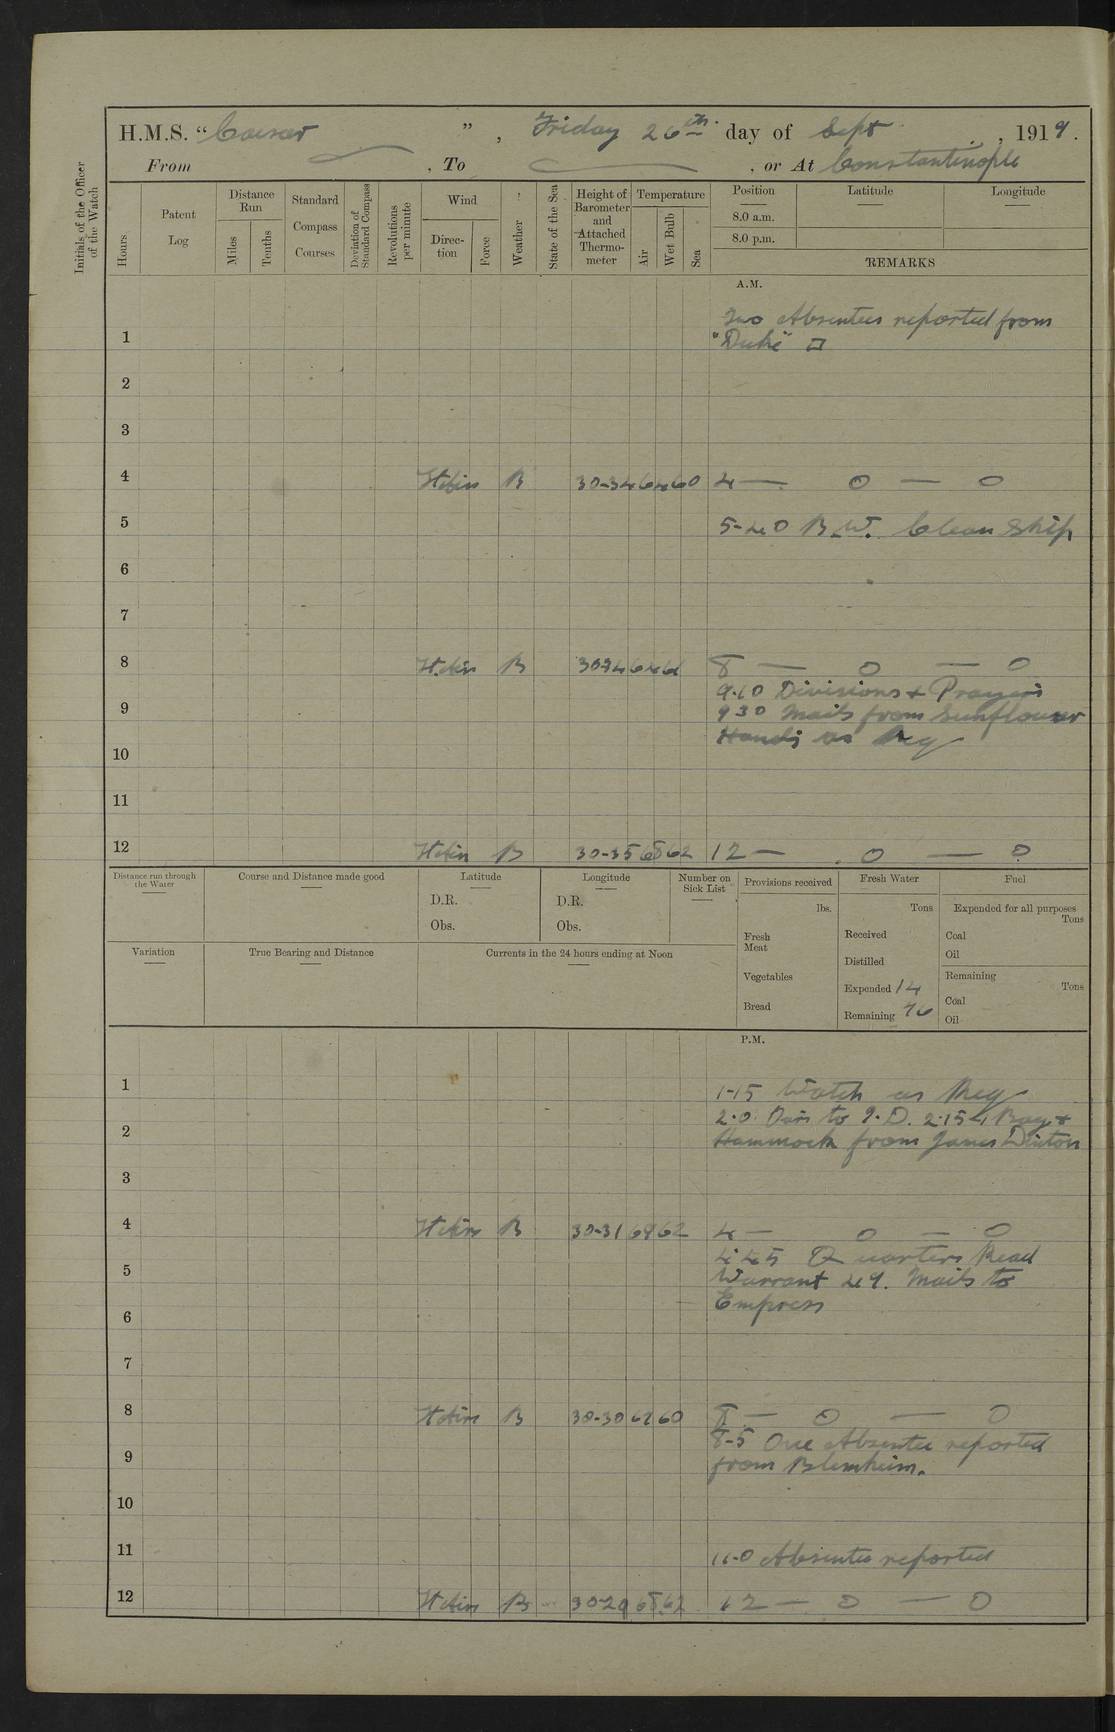 H.M.S. "Caesar", Friday 26th day of Sept, 1919.
From , To , or At Constantinople
Initials of the Officer of the Watch
Hours
Patent Log
Distance Run
Miles
Tenths
Standard Compass Courses
Deviation of Standard Compass
Revolutions per minute
Wind
Direction
Force
Weather
State of the Sea
Height of Barometer and Attached Thermometer
Temperature
Air
Wet Bulb
Sea
Position Latitude Longitude
8.0 a.m.
8.0 p.m.
REMARKS
A.M.
Two Absentees reported from
1 "Duke"
2
3
4 B 30-34 64 60 4 — 0 — 0
5 5-40 B.W. Clean Ship
6
7
8 B 8 — 0 — 0
9.10 Divisions & Prayers
9 930 Mails from Sunflower
Hands as Req
10
11
12 B 30-35 68 62 12 — 0 — 0
Distance run through the Water
Course and Distance made good
Latitude
D.R.
Obs.
Longitude
D.R.
Obs.
Number on Sick List
Provisions received
lbs.
Fresh Meat
Vegetables
Bread
Fresh Water
Tons
Received
Distilled
Expended 14
Remaining 76
Fuel
Expended for all purposes
Tons
Coal
Oil
Remaining
Tons
Coal
Oil
Variation
True Bearing and Distance
Currents in the 24 hours ending at Noon
P.M.
1 1-15 Watch as Req
2.0 to 2.15 4 Bag &
2 Hammock from James Dinton
3
4 B 30-31 69 62 4 — 0 — 0
4.45 Quarters Read
5 Warrant 49. Mails to
Empress
6
7
8 B 30-30 62 60 8 — 0 — 0
8-5 One Absentee reported
9 from Blenheim.
10
11 11-0 Absentee reported
12 B 30-29 68 62 12 — 0 — 0